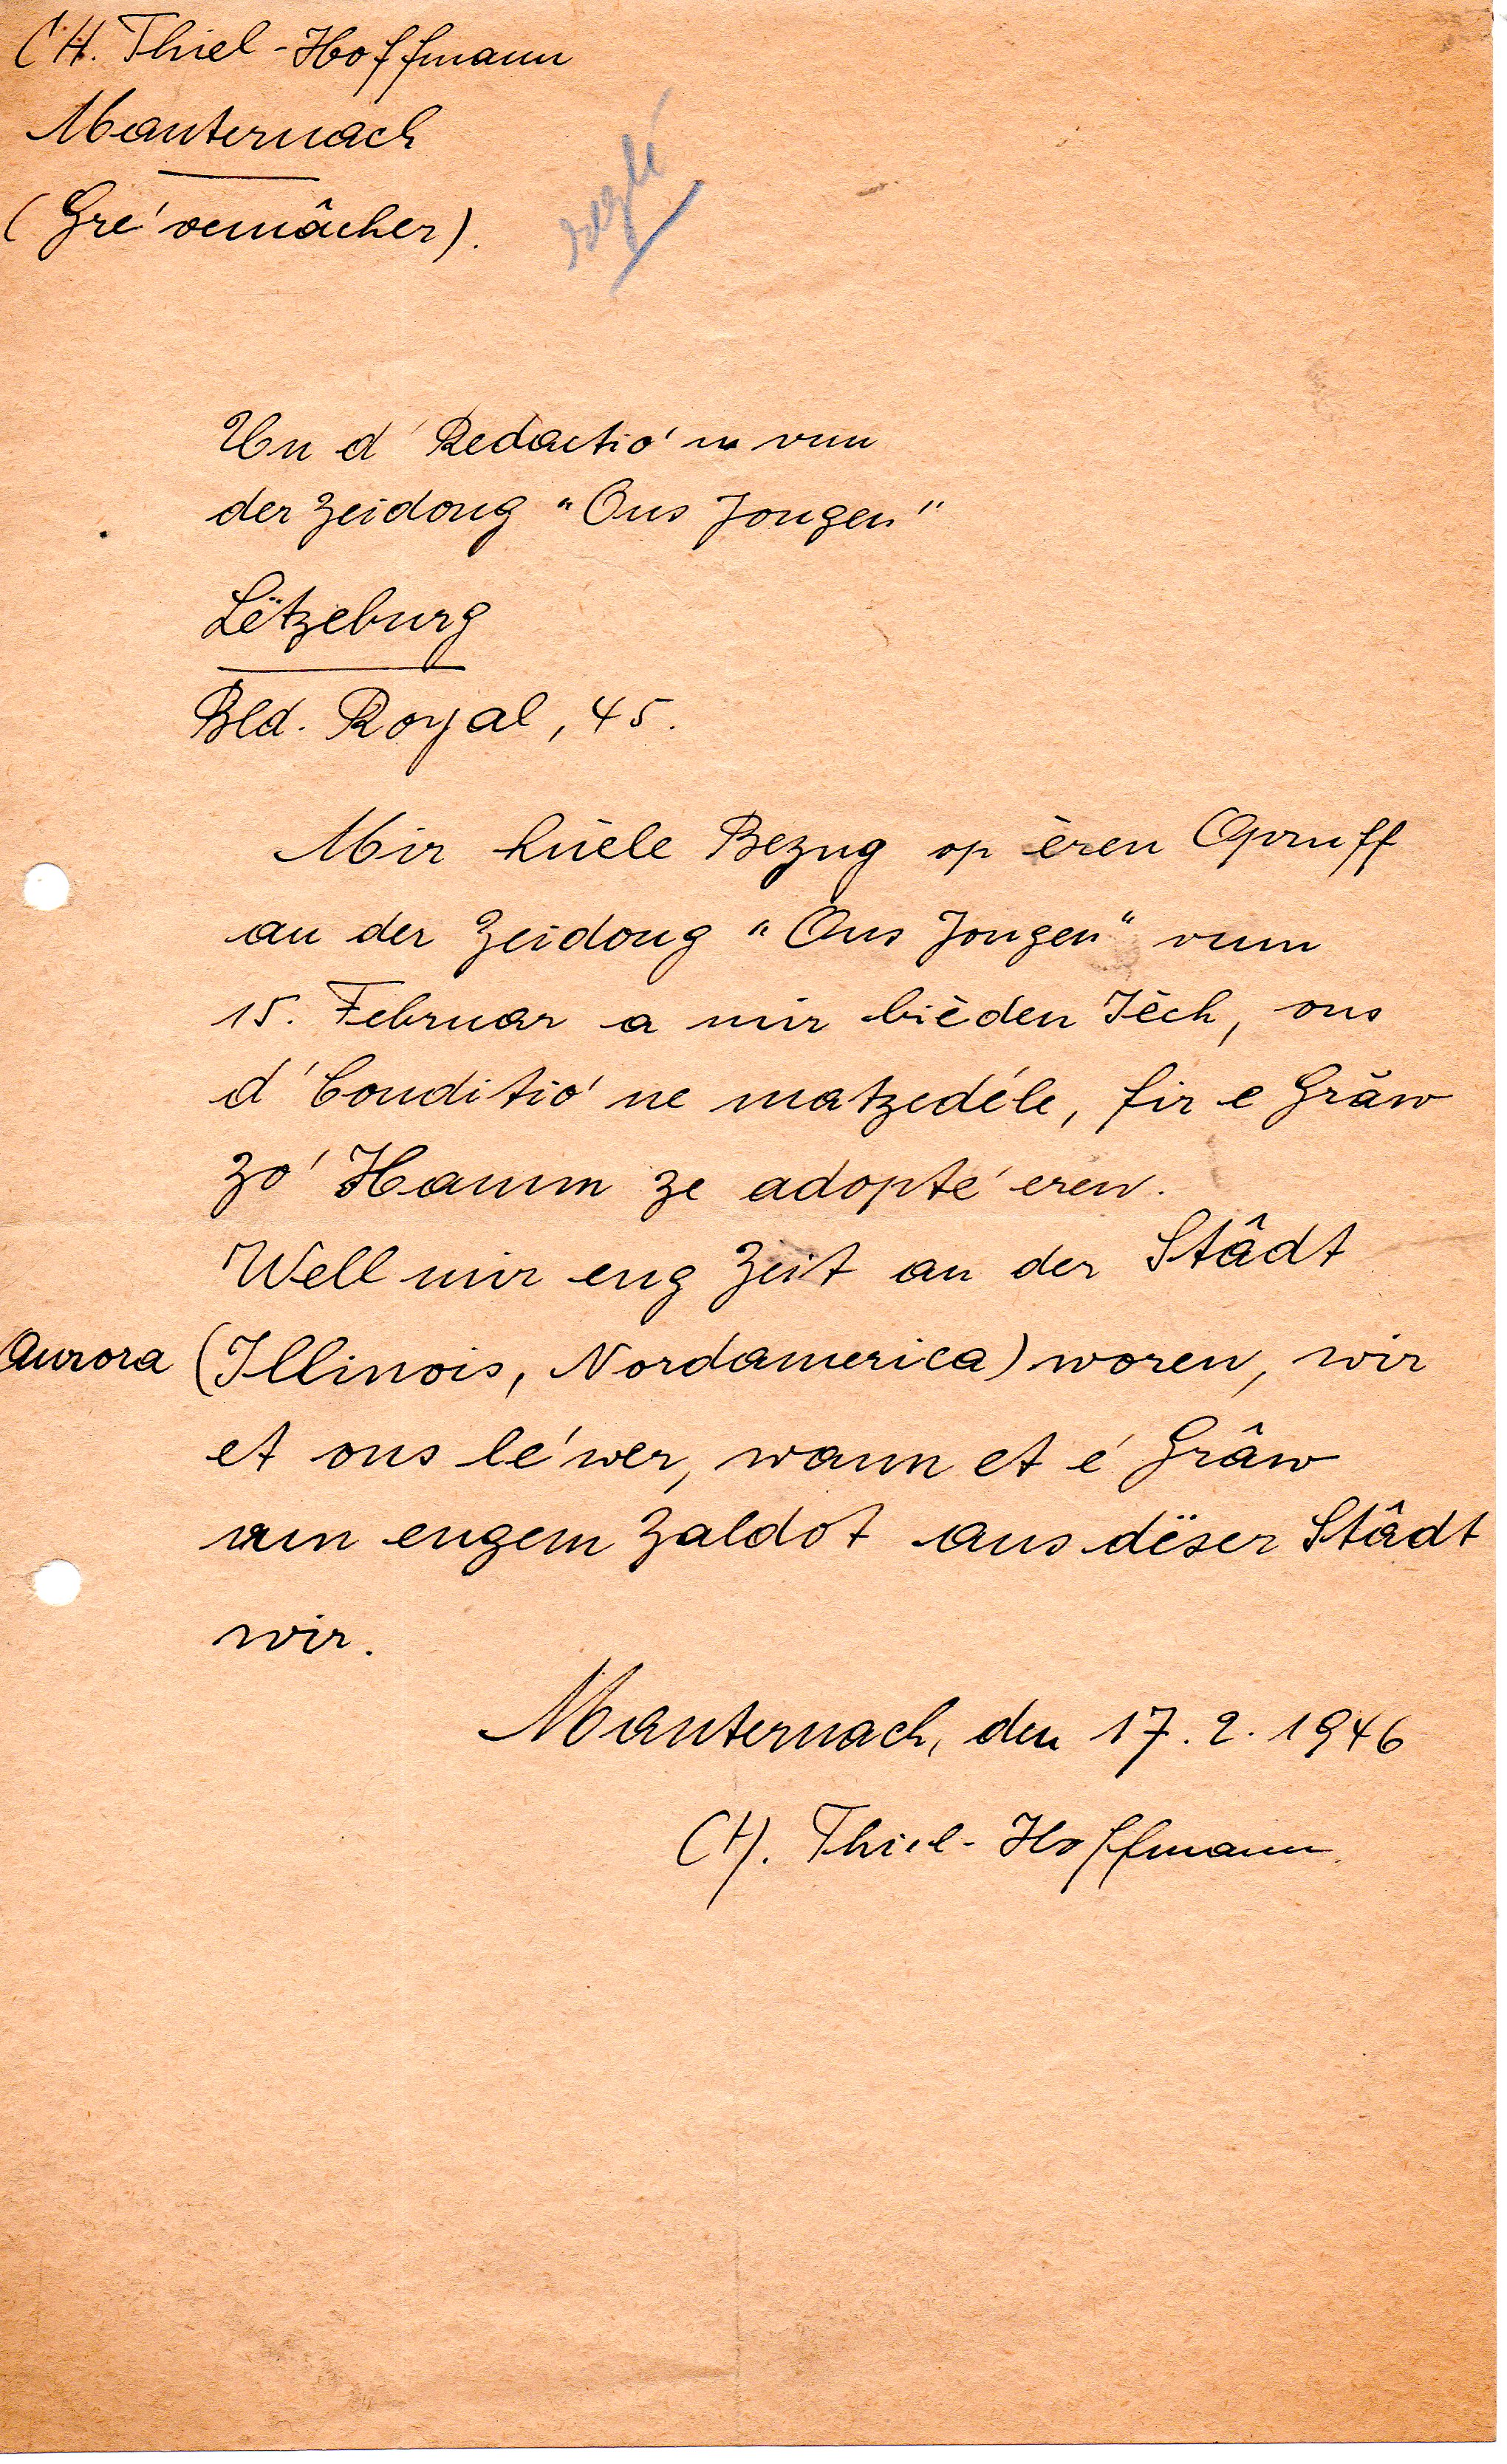 CH. Thiel-Hoffmann
Manternach
(Gre'vemâcher).
reglé
Un d'Redactio'n vun
der Zeidong "Ons Jongen"
Lëtzeburg
Bld. Royal, 45.
Mir huèle Bezug op èren Opruff
an der Zeidong "Ons Jongen" vum
15. Februar a mir bièden Ièch, ons
d'Conditio'ne matzedéle, fir e Grâw
zo' Hamm ze adopte'eren.
Well mir eng Zeit an der Stâdt
Aurora (Illinois, Nordamerica) woren, wir
et ons le'wer, wann et e' Grâw
vun engem Zaldot aus dëser Stâdt
wir.
Manternach, den 17.2.1946
CH. Thiel-Hoffmann.